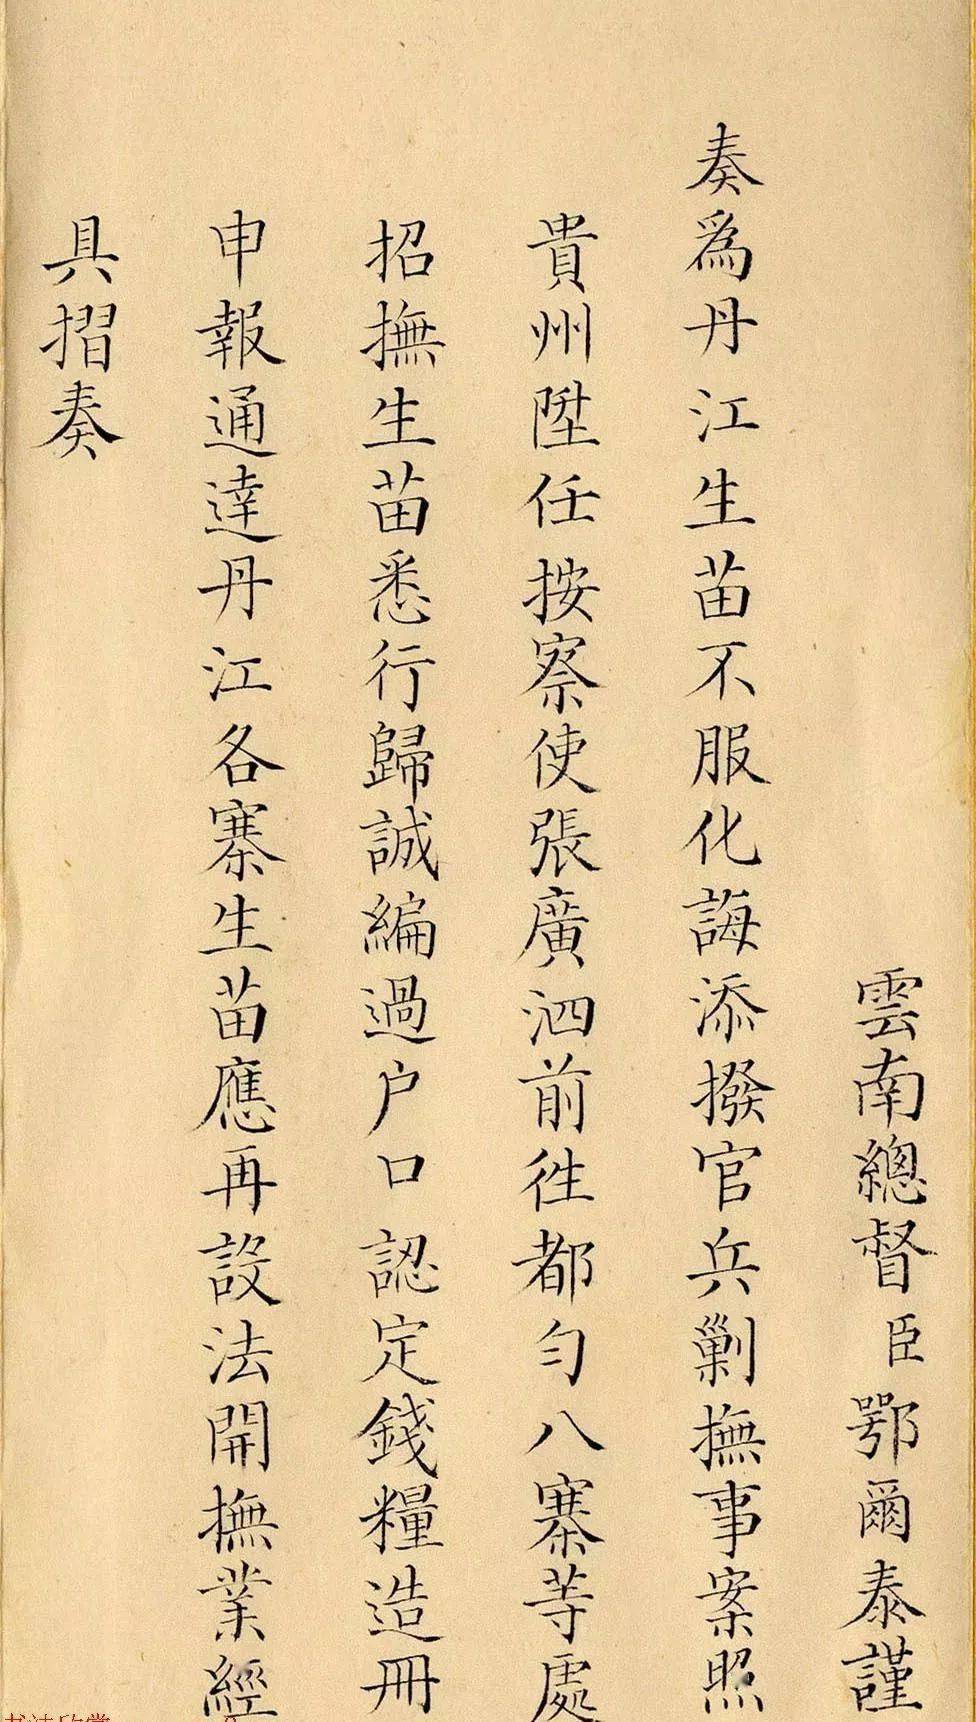 雲南總督臣鄂爾泰謹
奏爲丹江生苗不服化誨添撥官兵剿撫事案照
貴州陞任按察使張廣泗前徃都勻八寨等處
招撫生苗悉行歸誠編過户口認定錢糧造冊
申報通達丹江各寨生苗應再設法開撫業經
具摺奏